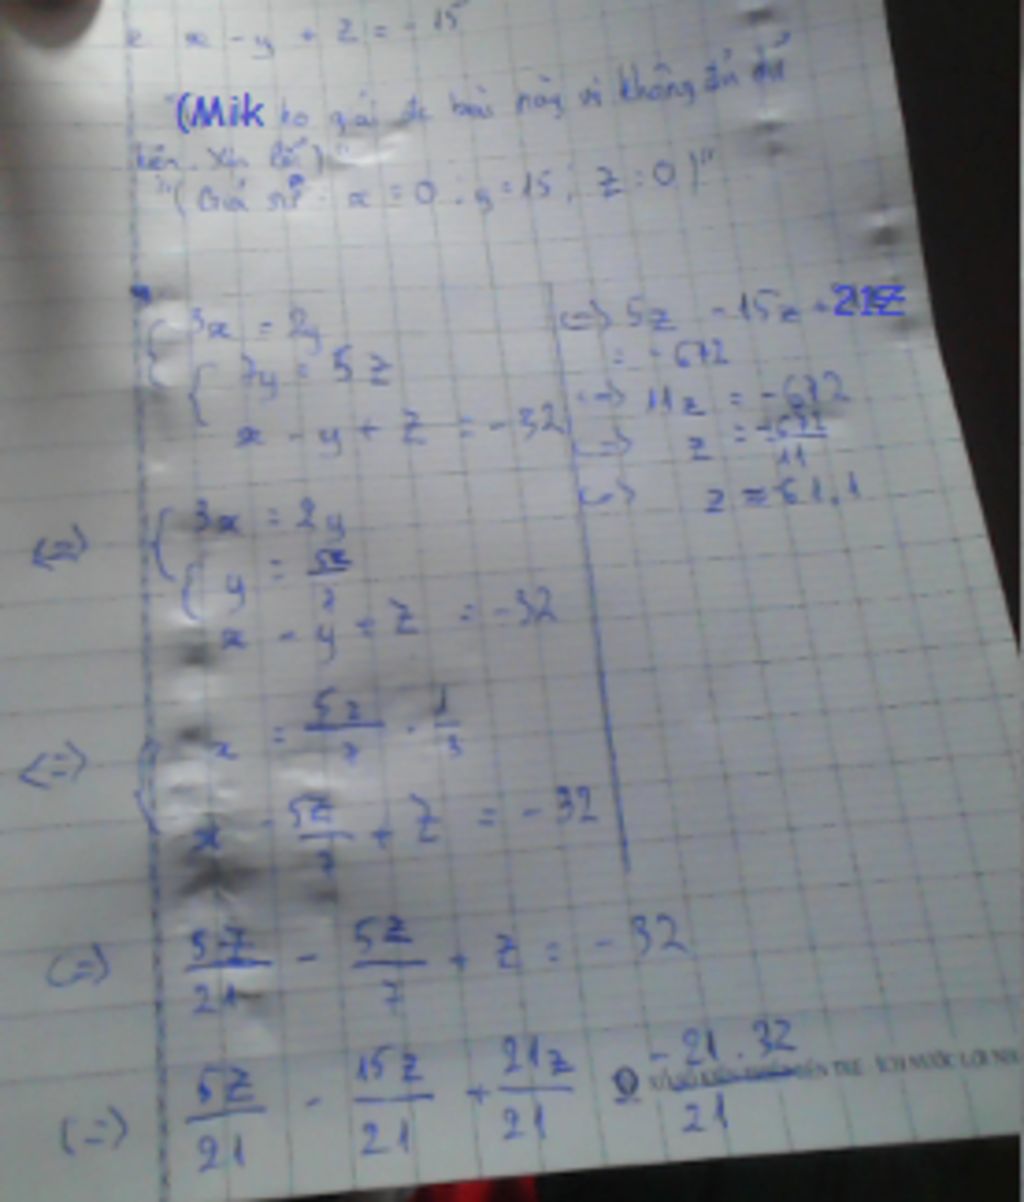 x - y + z = - 15
(Mik ko giải đc bài này vì không đủ dữ
kiện. Xin lỗi)"
"( Giả sử: x = 0 ; y = 15 ; z = 0 )"
3x = 2y
7y = 5z
x - y + z = - 32
<=> 3x = 2y
y = 5z/7
x - y + z = - 32
<=> x = 5z/7 .
x - 5z/7 + z = - 32
<=> 5z/21 - 5z/7 + z = - 32
<=> 5z/21 - 15z/21 + 21z/21 = - 21 . 32/21
<=> 5z - 15z + 21z
= - 672
<=> 11z = - 672
<=> z = - 672/11
<=> z ≈ 61,1